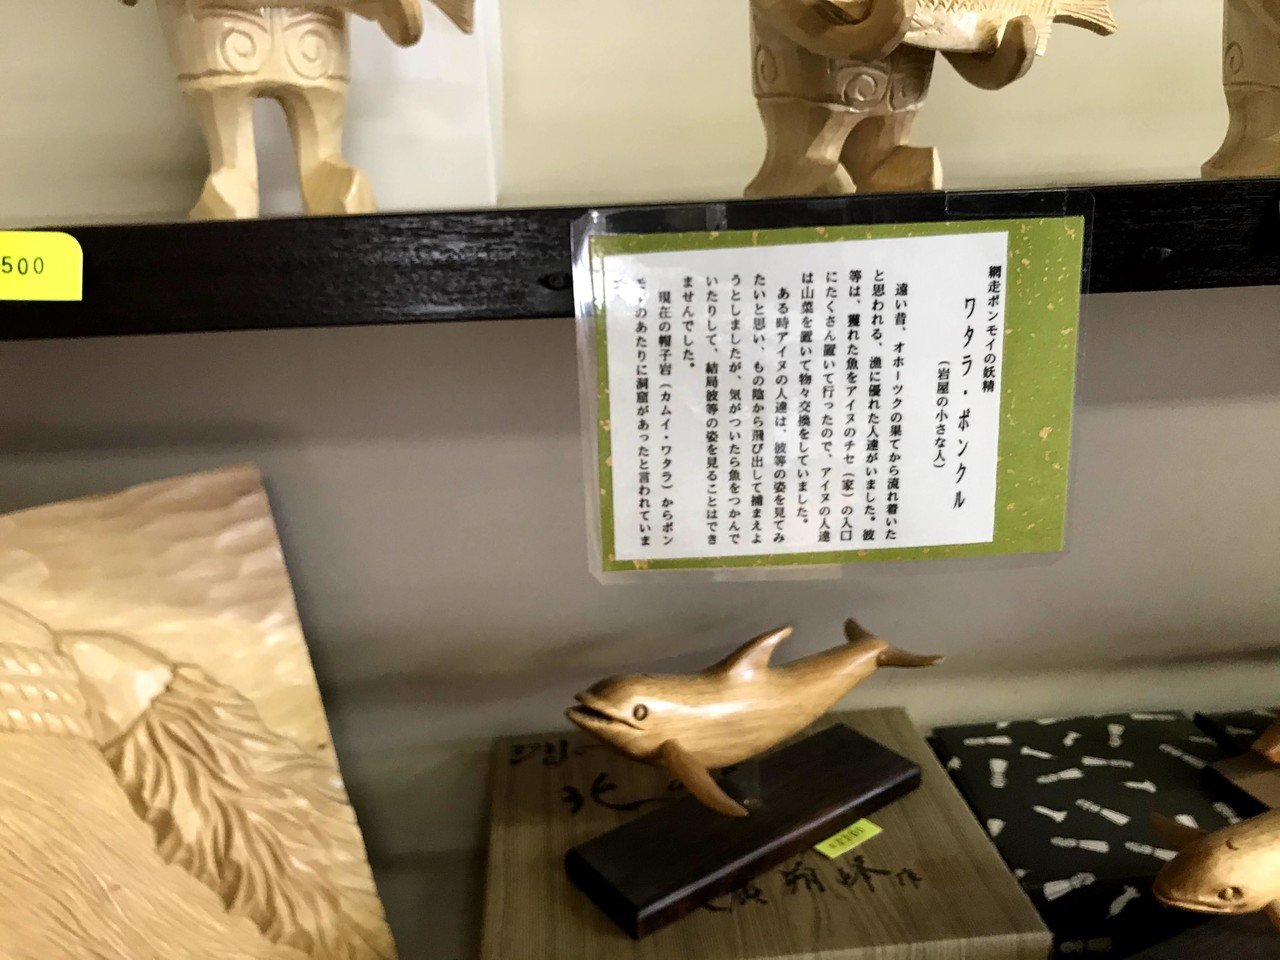 500
網走ポンモイの妖精
ワタラ・ポンクル
（岩屋の小さな人）
遠い昔、オホーツクの果てから流れ着いた
と思われる、漁に優れた人達がいました。彼
等は、獲れた魚をアイヌのチセ（家）の入口
にたくさん置いて行ったので、アイヌの人達
は山菜を置いて物々交換をしていました。
ある時アイヌの人達は、彼等の姿を見てみ
たいと思い、もの陰から飛び出して捕まえよ
うとしましたが、気がついたら魚をつかんで
いたりして、結局彼等の姿を見ることはでき
ませんでした。
現在の帽子岩（カムイ・ワタラ）からポン
モイのあたりに洞窟があったと言われていま